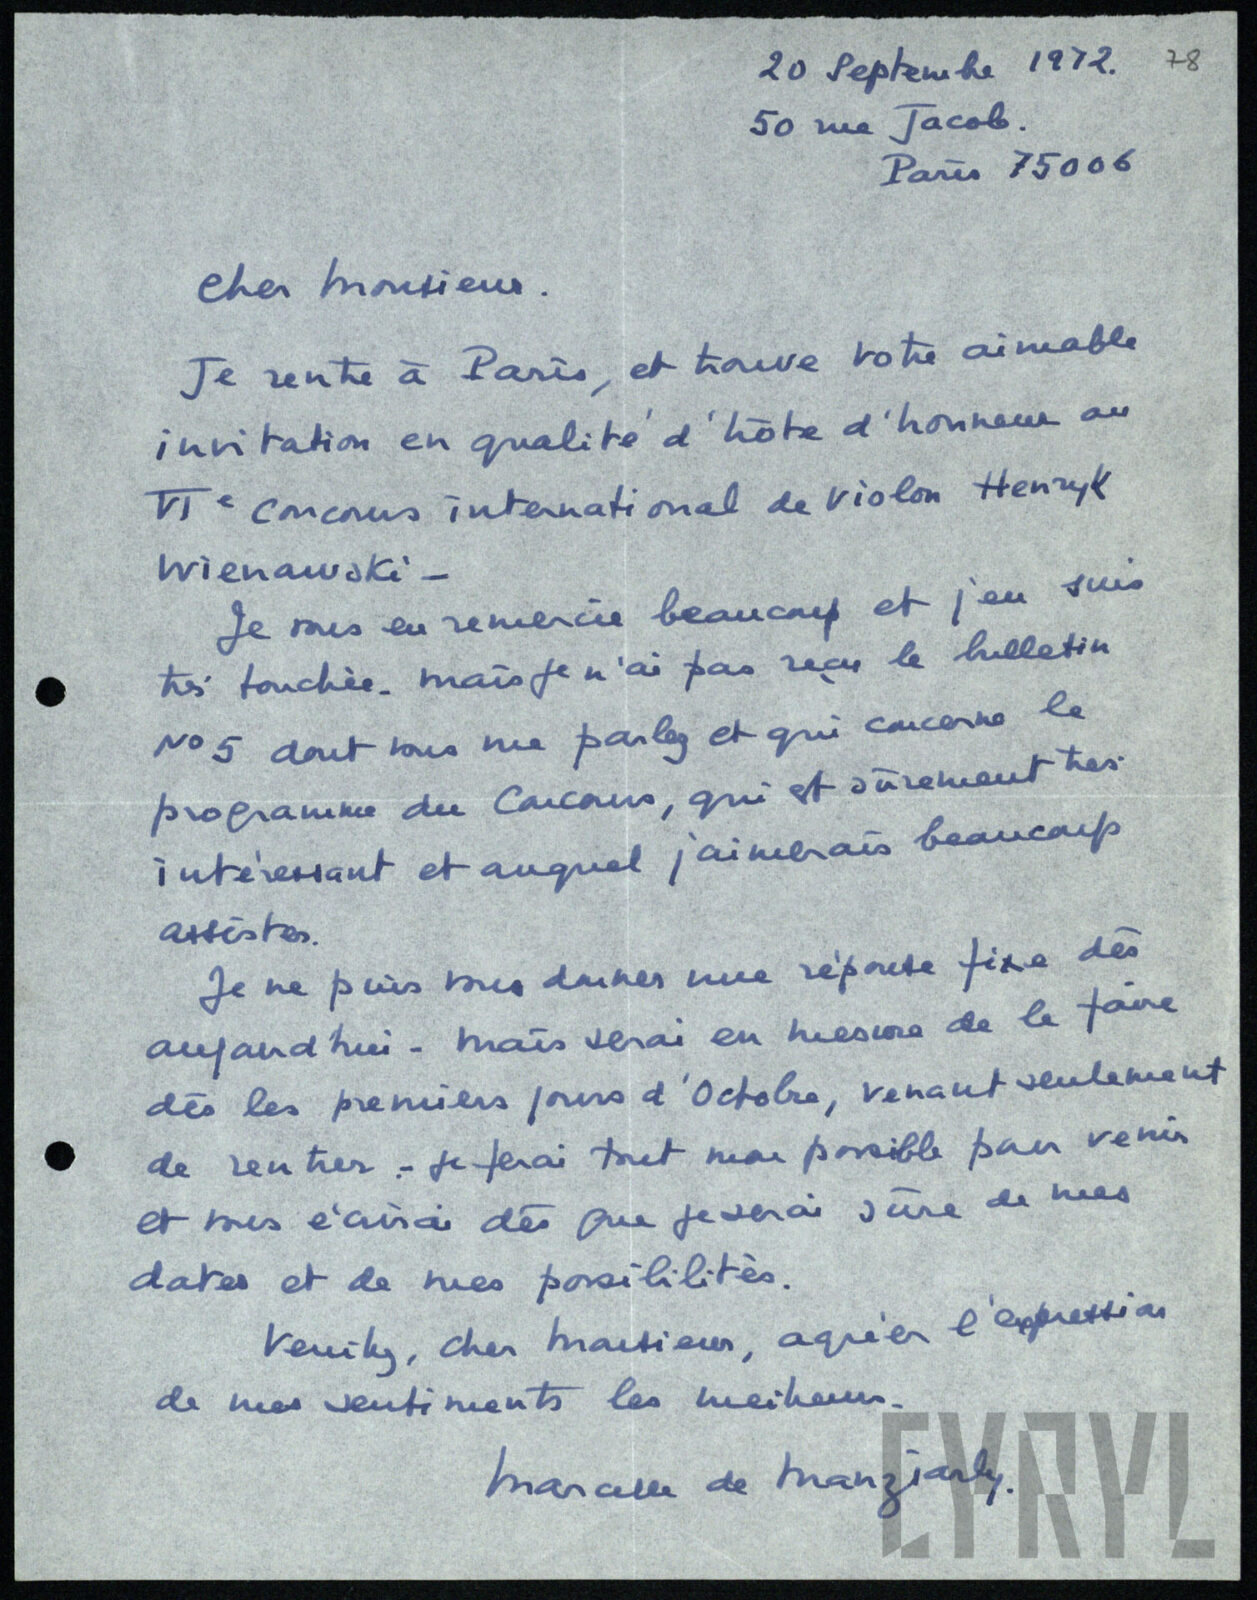 20 Septembre 1972. 78
50 rue Jacob.
Paris 75006
Cher Monsieur.
Je rentre à Paris, et trouve votre aimable
invitation en qualité d'hôte d'honneur au
VIe Concours international de Violon Henryk
Wienawski –
Je vous en remercie beaucoup et j'en suis
très touchée. Mais je n'ai pas reçu le bulletin
No 5 dont vous me parlez et qui concerne le
programme du Concours, qui est sûrement très
intéressant et auquel j'aimerais beaucoup
assister.
Je ne puis vous donner une réponse fixe dès
aujourd'hui - Mais serai en mesure de le faire
dès les premiers jours d'Octobre, venant seulement
de rentrer. - Je ferai tout mon possible pour venir
et vous écrirai dès que je serai sûre de mes
dates et de mes possibilités.
Veuillez, cher Monsieur, agréer l'expression
de mes sentiments les meilleurs.
Marcelle de Manziarly.
CYRYL